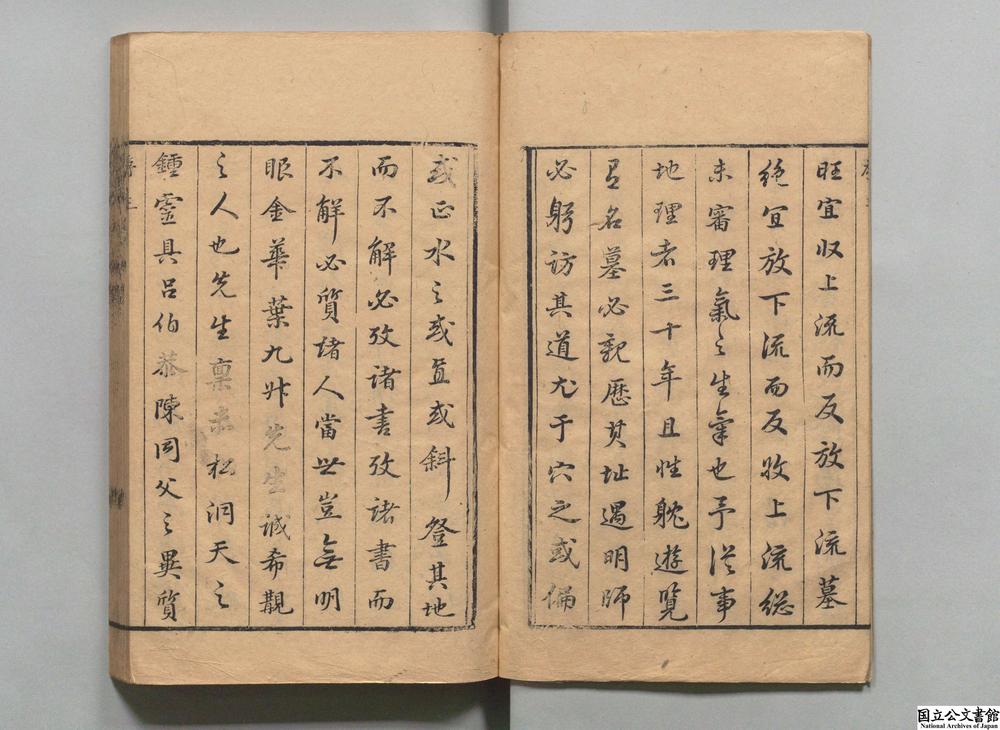 旺宜収上流而反放下流墓
絶宜放下流而反收上流総
未審理氣之生氣也予従事
地理者三十年且性躭遊覽
名墓必親歴其址遇明師
必躬訪其道尤于穴之或偏
或正水之或直或斜登其地
而不解必攷諸書攷諸書而
不解必質諸人當世豈無明
眼金華葉九升先生誠希覯
之人也先生禀赤松洞天之
鍾靈具呂伯恭陳同父之異質
国立公文書館
National Archives of Japan